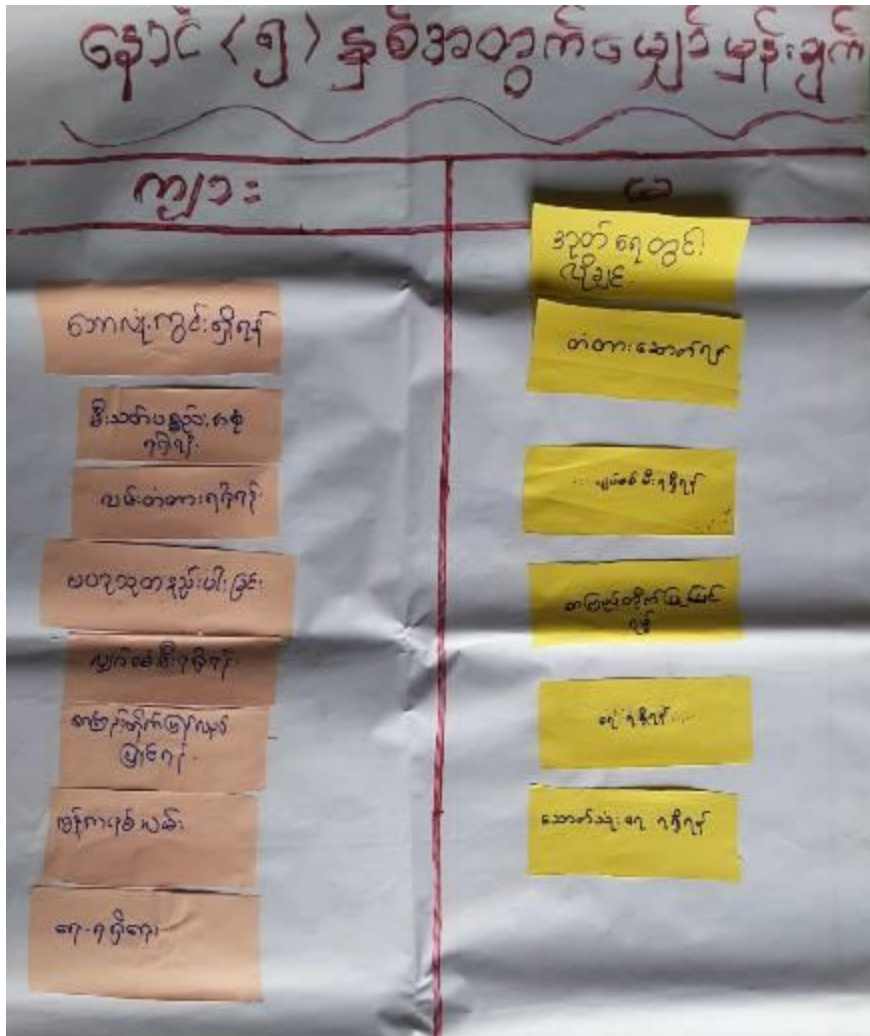 နောင် (၅) နှစ်အတွက် မျှော်မှန်းချက်
ကျား
မ
ဘောလုံးကွင်းရှိရန်
မီးသတ်ပစ္စည်းအစုံ
ရရှိရန်
လမ်းတံတားရရှိရန်
နည်းပါးခြင်း
လျှပ်စစ်မီးရရှိရန်
စာကြည့်တိုက်ပြန်လည်
ပြုပြင်ရန်
ကွန်ကရစ်လမ်း
ရေ-ရရှိရေး
အုတ်ရေတွင်း
လိုချင်
တံတားဆောက်ရန်
လျှပ်စစ်မီးရရှိရန်
စာကြည့်တိုက်ပြုပြင်
ရန်
ရရှိရန်
သောက်သုံးရေ ရရှိရန်